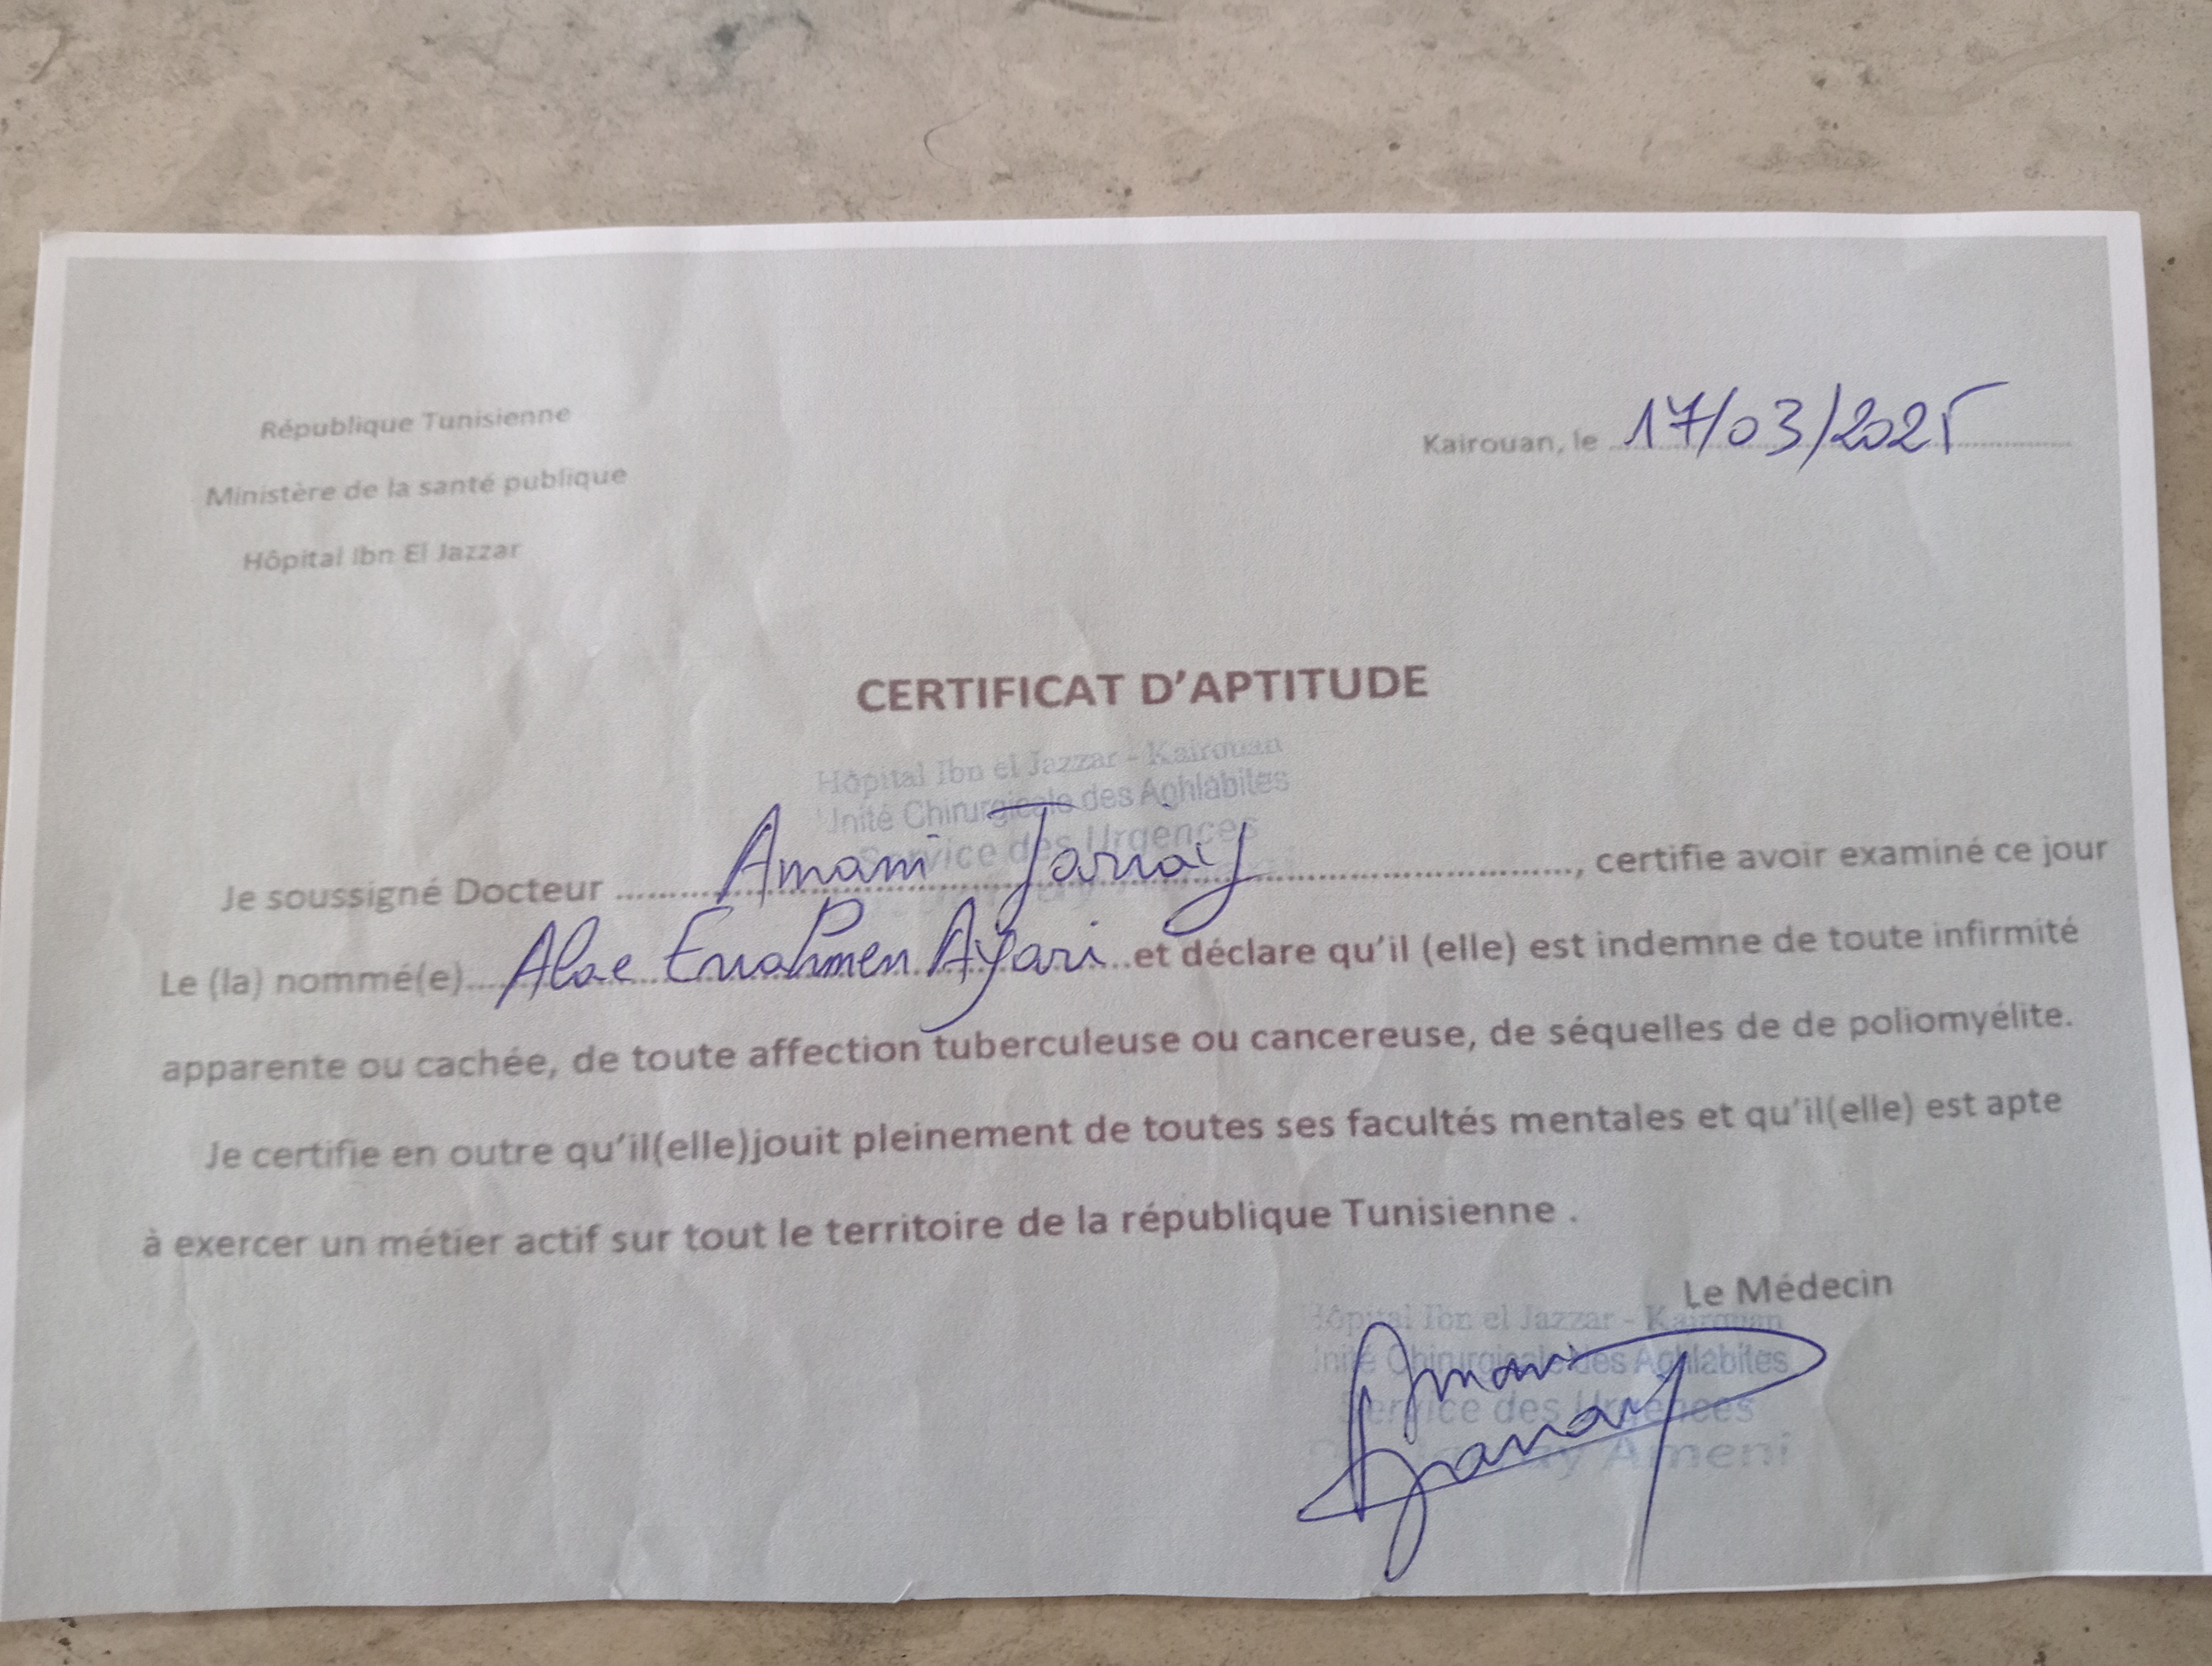 République Tunisienne
Kairouan, le 17/03/2025
Ministère de la santé publique
Hôpital Ibn El Jazzar
CERTIFICAT D'APTITUDE
Hôpital Ibn el Jazzar - Kairouan
Unité Chirurgicale des Aghlabites
Service des Urgences
Je soussigné Docteur Amani Jarray, certifie avoir examiné ce jour
Le (la) nommé(e) Alae Errahmen Ayari et déclare qu'il (elle) est indemne de toute infirmité
apparente ou cachée, de toute affection tuberculeuse ou cancereuse, de séquelles de de poliomyélite.
Je certifie en outre qu'il(elle)jouit pleinement de toutes ses facultés mentales et qu'il(elle) est apte
à exercer un métier actif sur tout le territoire de la république Tunisienne .
Le Médecin
Hôpital Ibn el Jazzar - Kairouan
Unité Chirurgicale des Aghlabites
Service des Urgences
Ameni